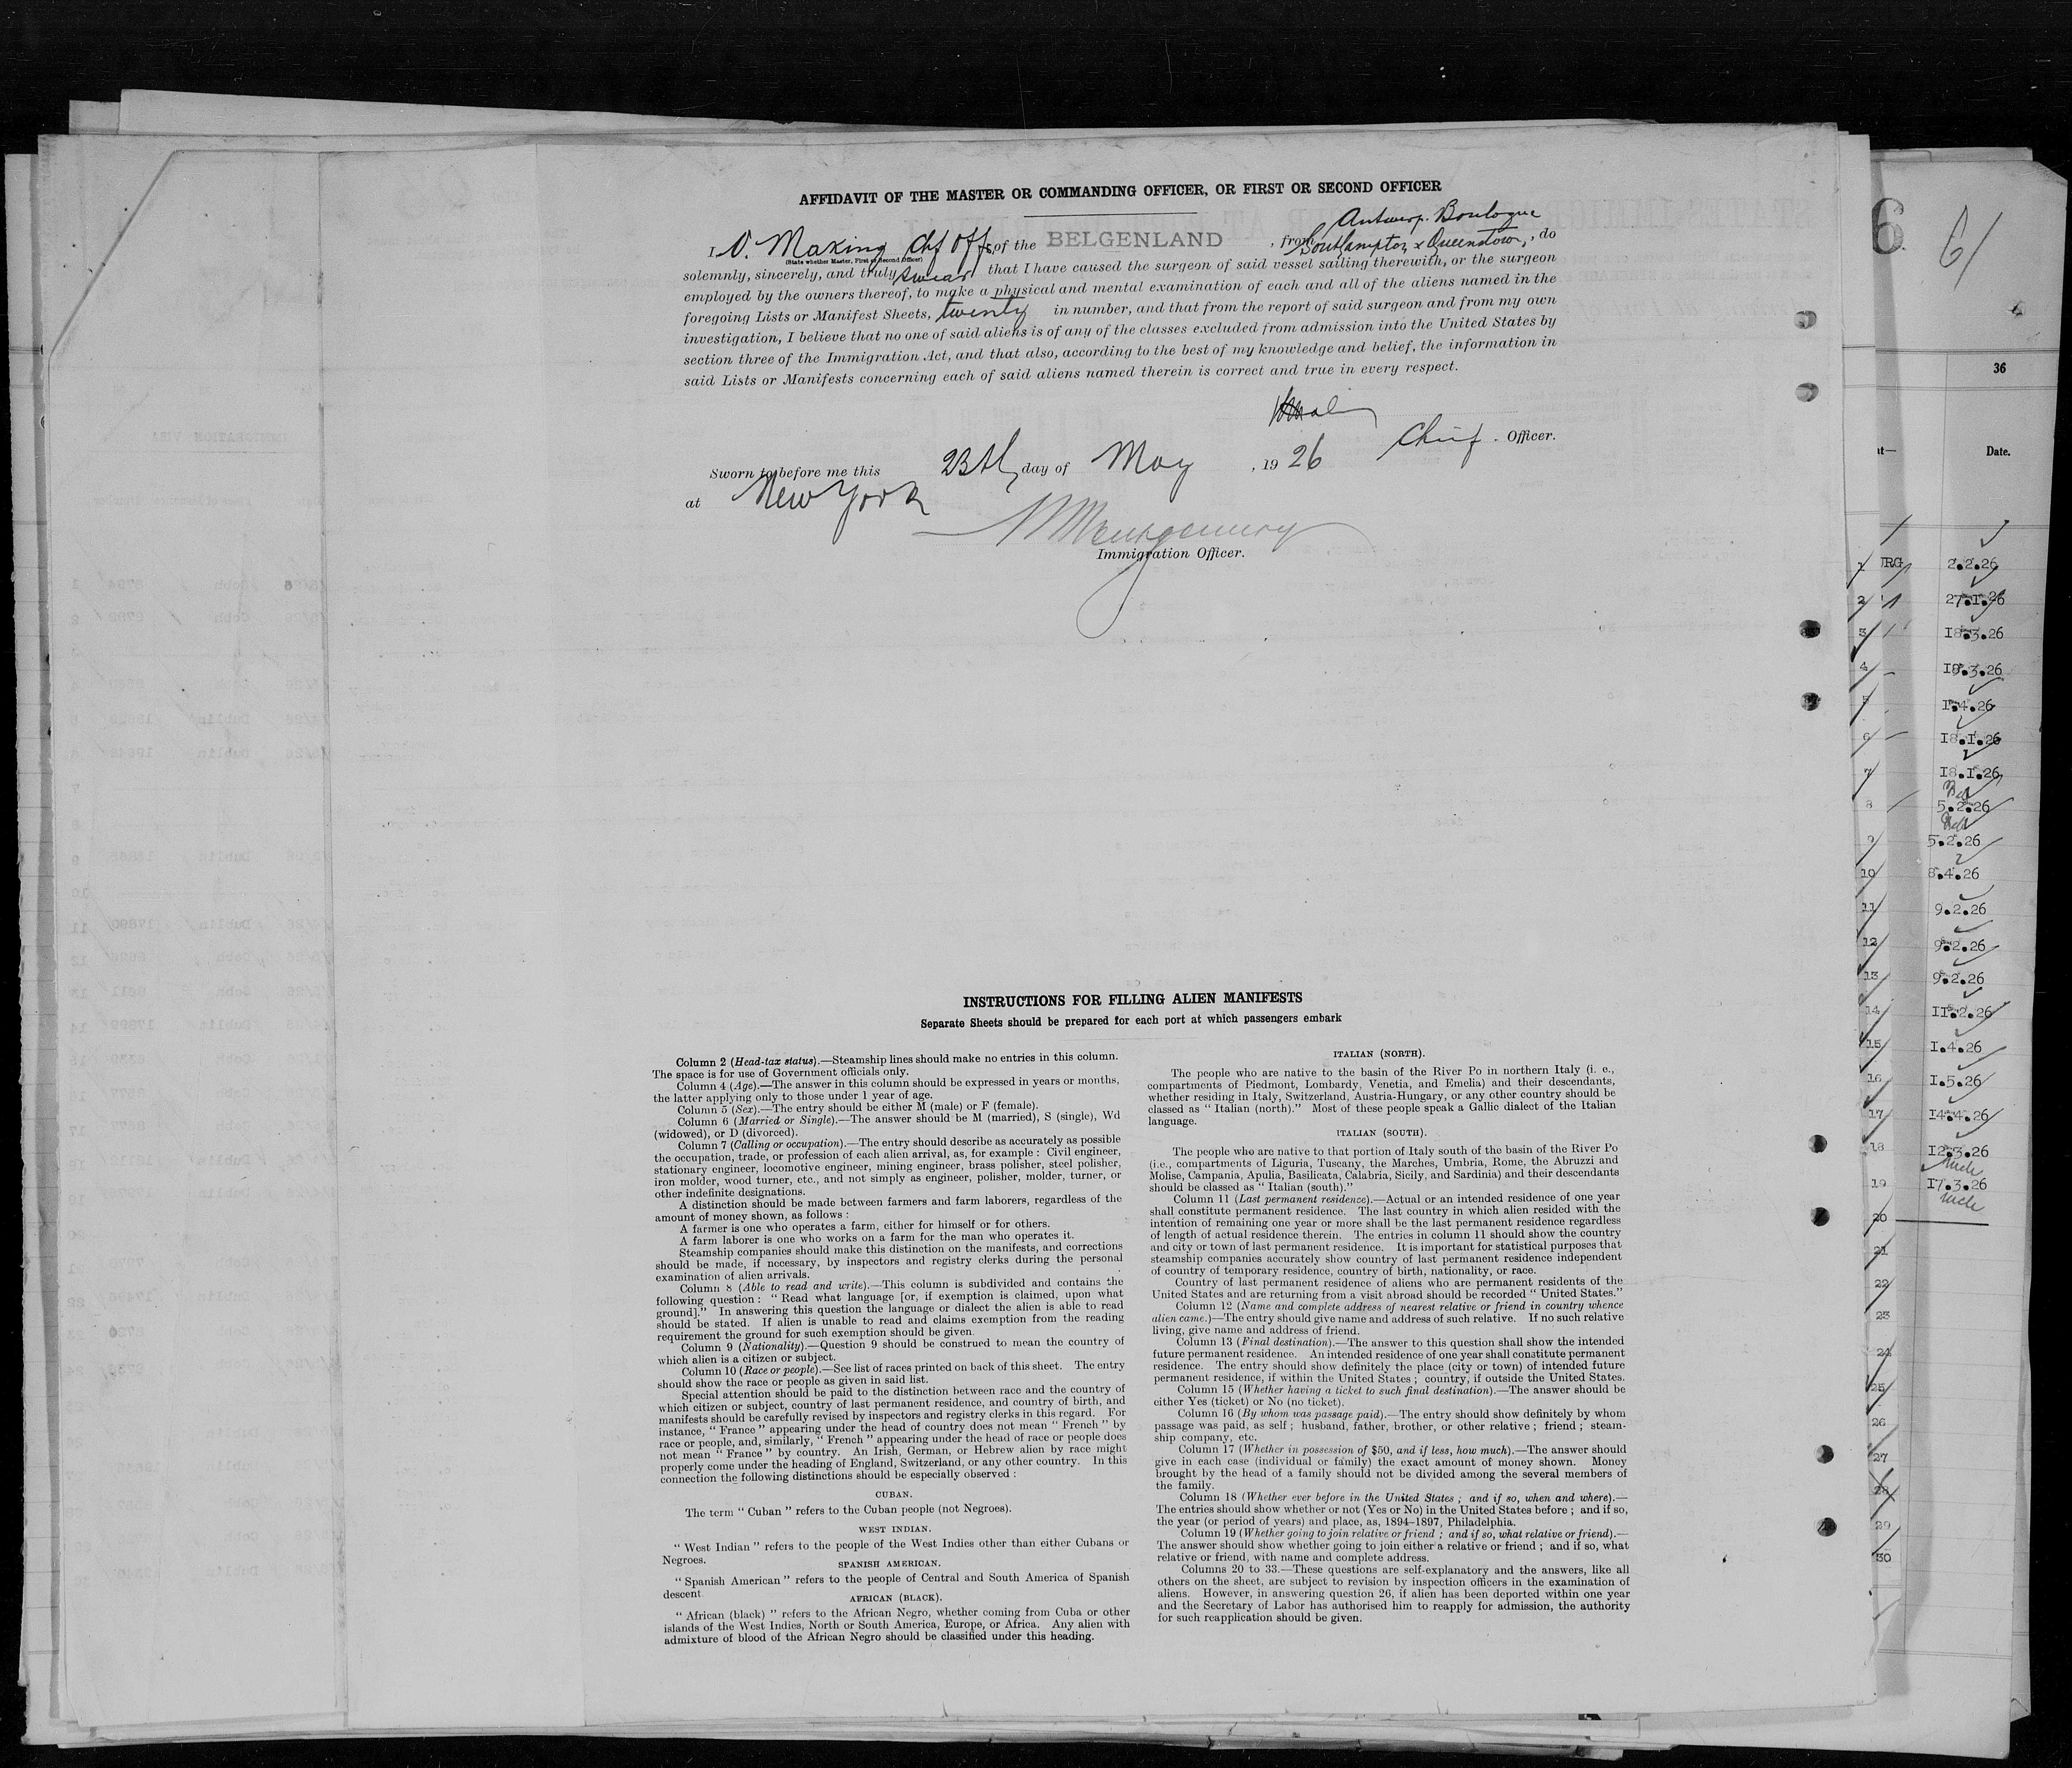 AFFIDAVIT OF THE MASTER OR COMMANDING OFFICER, OR FIRST OR SECOND OFFICER
I, V. Making Chf Offr, of the BELGENLAND, from Antwerp. Boulogne Southampton & Queenstown, do
(State whether Master, First or Second Officer)
solemnly, sincerely, and truly swear that I have caused the surgeon of said vessel sailing therewith, or the surgeon
employed by the owners thereof, to make a physical and mental examination of each and all of the aliens named in the
foregoing Lists or Manifest Sheets, twenty in number, and that from the report of said surgeon and from my own
investigation, I believe that no one of said aliens is of any of the classes excluded from admission into the United States by
section three of the Immigration Act, and that also, according to the best of my knowledge and belief, the information in
said Lists or Manifests concerning each of said aliens named therein is correct and true in every respect.
Chief. Officer.
Sworn to before me this 23th day of May, 1926
at New York
Montgomery
Immigration Officer.
INSTRUCTIONS FOR FILLING ALIEN MANIFESTS
Separate Sheets should be prepared for each port at which passengers embark
Column 2 (Head-tax status).—Steamship lines should make no entries in this column.
The space is for use of Government officials only.
Column 4 (Age).—The answer in this column should be expressed in years or months,
the latter applying only to those under 1 year of age.
Column 5 (Sex).—The entry should be either M (male) or F (female).
Column 6 (Married or Single).—The answer should be M (married), S (single), Wd
(widowed), or D (divorced).
Column 7 (Calling or occupation).—The entry should describe as accurately as possible
the occupation, trade, or profession of each alien arrival, as, for example : Civil engineer,
stationary engineer, locomotive engineer, mining engineer, brass polisher, steel polisher,
iron molder, wood turner, etc., and not simply as engineer, polisher, molder, turner, or
other indefinite designations.
A distinction should be made between farmers and farm laborers, regardless of the
amount of money shown, as follows :
A farmer is one who operates a farm, either for himself or for others.
A farm laborer is one who works on a farm for the man who operates it.
Steamship companies should make this distinction on the manifests, and corrections
should be made, if necessary, by inspectors and registry clerks during the personal
examination of alien arrivals.
Column 8 (Able to read and write).—This column is subdivided and contains the
following question : “ Read what language [or, if exemption is claimed, upon what
ground].” In answering this question the language or dialect the alien is able to read
should be stated. If alien is unable to read and claims exemption from the reading
requirement the ground for such exemption should be given.
Column 9 (Nationality).—Question 9 should be construed to mean the country of
which alien is a citizen or subject.
Column 10 (Race or people).—See list of races printed on back of this sheet. The entry
should show the race or people as given in said list.
Special attention should be paid to the distinction between race and the country of
which citizen or subject, country of last permanent residence, and country of birth, and
manifests should be carefully revised by inspectors and registry clerks in this regard. For
instance, “ France ” appearing under the head of country does not mean “ French ” by
race or people, and, similarly, “ French ” appearing under the head of race or people does
not mean “ France ” by country. An Irish, German, or Hebrew alien by race might
properly come under the heading of England, Switzerland, or any other country. In this
connection the following distinctions should be especially observed :
CUBAN.
The term “ Cuban ” refers to the Cuban people (not Negroes).
WEST INDIAN.
“ West Indian ” refers to the people of the West Indies other than either Cubans or
Negroes.
SPANISH AMERICAN.
“ Spanish American ” refers to the people of Central and South America of Spanish
descent
AFRICAN (BLACK).
“ African (black) ” refers to the African Negro, whether coming from Cuba or other
islands of the West Indies, North or South America, Europe, or Africa. Any alien with
admixture of blood of the African Negro should be classified under this heading.
ITALIAN (NORTH).
The people who are native to the basin of the River Po in northern Italy (i. e.,
compartments of Piedmont, Lombardy, Venetia, and Emelia) and their descendants,
whether residing in Italy, Switzerland, Austria-Hungary, or any other country should be
classed as “ Italian (north).” Most of these people speak a Gallic dialect of the Italian
language.
ITALIAN (SOUTH).
The people who are native to that portion of Italy south of the basin of the River Po
(i.e., compartments of Liguria, Tuscany, the Marches, Umbria, Rome, the Abruzzi and
Molise, Campania, Apulia, Basilicata, Calabria, Sicily, and Sardinia) and their descendants
should be classed as “ Italian (south).”
Column 11 (Last permanent residence).—Actual or an intended residence of one year
shall constitute permanent residence. The last country in which alien resided with the
intention of remaining one year or more shall be the last permanent residence regardless
of length of actual residence therein. The entries in column 11 should show the country
and city or town of last permanent residence. It is important for statistical purposes that
steamship companies accurately show country of last permanent residence independent
of country of temporary residence, country of birth, nationality, or race.
Country of last permanent residence of aliens who are permanent residents of the
United States and are returning from a visit abroad should be recorded “ United States.”
Column 12 (Name and complete address of nearest relative or friend in country whence
alien came.)—The entry should give name and address of such relative. If no such relative
living, give name and address of friend.
Column 13 (Final destination).—The answer to this question shall show the intended
future permanent residence. An intended residence of one year shall constitute permanent
residence. The entry should show definitely the place (city or town) of intended future
permanent residence, if within the United States ; country, if outside the United States.
Column 15 (Whether having a ticket to such final destination).—The answer should be
either Yes (ticket) or No (no ticket).
Column 16 (By whom was passage paid).—The entry should show definitely by whom
passage was paid, as self ; husband, father, brother, or other relative ; friend ; steam-
ship company, etc.
Column 17 (Whether in possession of $50, and if less, how much).—The answer should
give in each case (individual or family) the exact amount of money shown. Money
brought by the head of a family should not be divided among the several members of
the family.
Column 18 (Whether ever before in the United States ; and if so, when and where).—
The entries should show whether or not (Yes or No) in the United States before ; and if so,
the year (or period of years) and place, as, 1894–1897, Philadelphia.
Column 19 (Whether going to join relative or friend ; and if so, what relative or friend).—
The answer should show whether going to join either a relative or friend ; and if so, what
relative or friend, with name and complete address.
Columns 20 to 33.—These questions are self-explanatory and the answers, like all
others on the sheet, are subject to revision by inspection officers in the examination of
aliens. However, in answering question 26, if alien has been deported within one year
and the Secretary of Labor has authorised him to reapply for admission, the authority
for such reapplication should be given.
6 61
36
Date.
1 URG 2.2.26
2 27.1.26
3 18.3.26
4 I9.3.26
5 I.4.26
6 I8.I.26
7 I8.I.26
8 5.2.26
9 5.2.26
10 8.4.26
11 9.2.26
12 9.2.26
13 9.2.26
14 II.2.26
15 I.4.26
16 I.5.26
17 I4.4.26
18 I2.3.26
19 I7.3.26
20
21
22
23
24
25
26
27
28
29
30